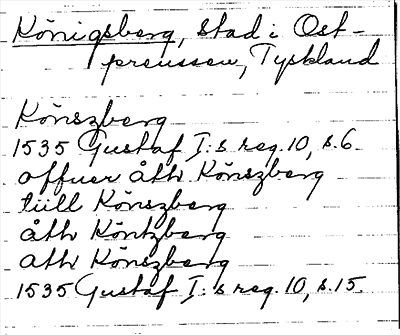 Königsberg, stad i Ost-
preussen, Tyskland
Könszberg
1535 Gustaf I:s reg. 10, s. 6.
offuer åth Könszberg
tüll Könszberg
åth Köntzberg
ath Könszberg
1535 Gustaf I:s reg. 10, s. 15.